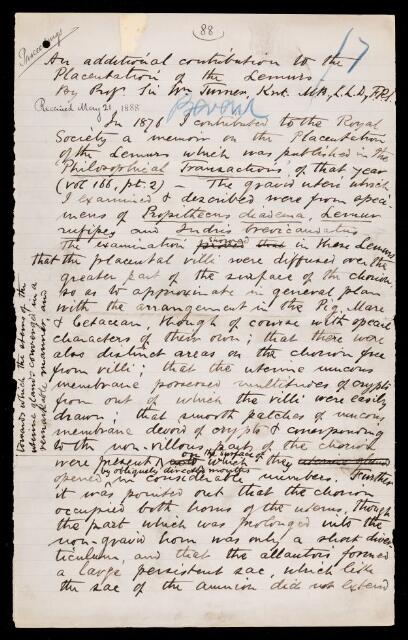 (88)
Proceedings
17
An additional contribution to the
Placentation of the Lemurs
By Prof. Sir Wm Turner, Knt. M.B, L.L.D, F.R.S.
Received May 21, 1888
In 1876 I contributed to the Royal
Society a memoir on the Placentation
of the Lemurs which was published in the
Philosophical Transactions, of that year
(vol 166, pt. 2) — The gravid uteri which
I examined & described were from speci-
mens of Propithecus diadema, Lemur
rufipes and Indris brevicaudatus
The examination proved that in these Lemurs
that the placental villi were diffused over the
greater part of the surface of the chorion
so as to approximate in general plan
with the arrangement in the Pig, Mare
& Cetacean, though of course with special
characters of their own; that there were
also distinct areas on the chorion free
from villi; that the uterine mucous
membrane possessed multitudes of crypts
from out of which the villi were easily
drawn; that smooth patches of mucous
membrane devoid of crypts & corresponding
to the non-villous parts of the chorion
were present, on the surface of which they
opened by obliquely directed mouths in considerable numbers. Further
it was pointed out that the chorion
occupied both horns of the uterus, though
the part which was prolonged into the
non-gravid horn was only a short diver
ticulum, and that the allantois formed
a large persistent sac, which like
the sac of the amnion did not extend
towards which the stems of the
uterine glands converged in a
remarkable manner, and